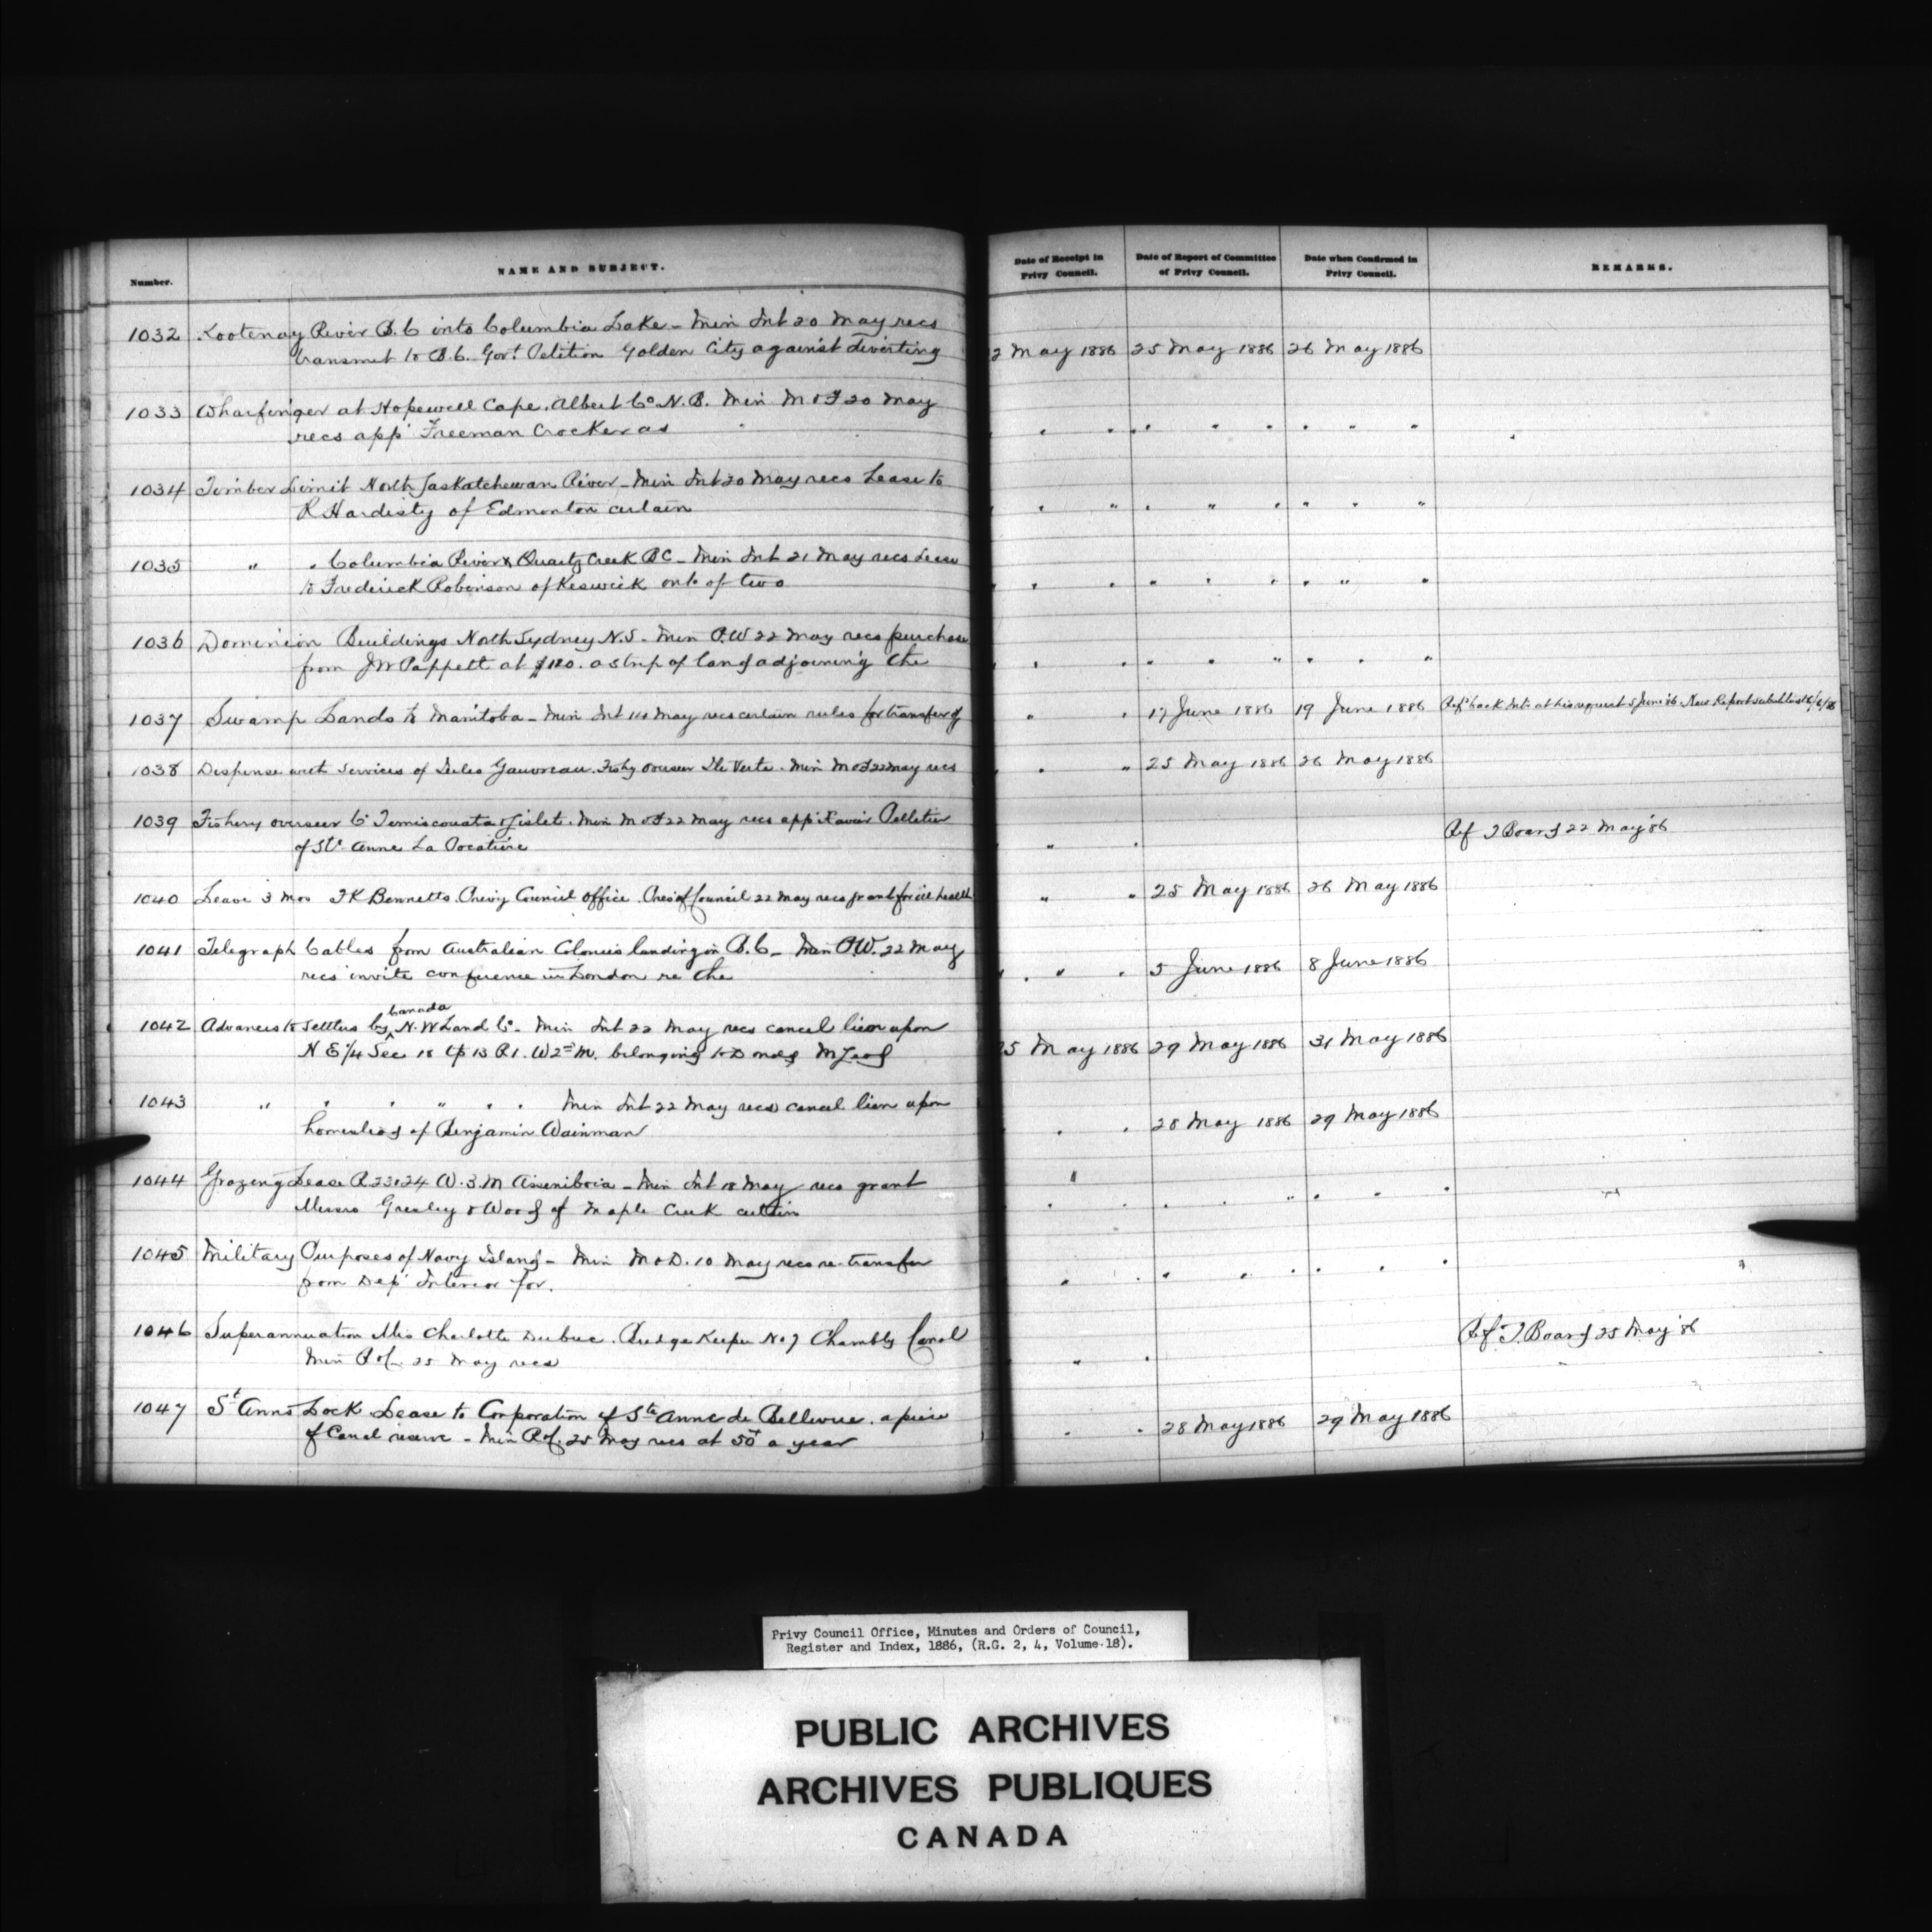 Number.
NAME AND SUBJECT.
Date of Receipt in
Privy Council.
Date of Report of Committee
of Privy Council.
Date when Confirmed in
Privy Council.
REMARKS.
1032 Kootenay River B.C into Columbia Lake - Min Int 20 May recs
transmit to B.C. Govt Petition Golden City against diverting
2 May 1886 25 May 1886 26 May 1886
1033 Wharfinger at Hopewell Cape. Albert Co N.B. Min M & F 20 May
recs appt Freeman Crocker as
" " " " " " " "
1034 Timber Limit North Saskatchewan River - Min Int 20 May recs Lease to
R Hardisty of Edmonton certain
" " " " " " " "
1035 " " Columbia River & Quartz Creek BC - Min Int 21 May recs Lease
to Frederick Robinson of Keswick Onto of two
" " " " " " " "
1036 Dominion Buildings North Sydney N.S - Min P.W 22 May recs purchase
from JW Pappett at $180. a strip of land adjoining the
" " " " " " " "
1037 Swamp Lands to Manitoba - Min Int May recs certain rules for transfer of
" " 17 June 1886 19 June 1886 Refd back Int. at his request 5 June 86. New Report submitted 16/6/86
1038 Dispense with Services of Gauvreau. Fishy Overseer Ile Verte. Min M & F 22 May recs
" " 25 May 1886 26 May 1886
1039 Fishery overseer Co Temiscouata & Lislet. Min M & F 22 May recs appt Xavier Pelletier
of Ste Anne La Pocatière
" " Ref T Board 22 May '86
1040 Leave 3 mos J K Bennetts Privy Council Office. Pres of Council 22 May recs grant for ill health
" " 25 May 1886 26 May 1886
1041 Telegraph Cables from Australian Colonies landing in B.C - Min P.W. 22 May
recs invite conference in London re the
" " 5 June 1886 8 June 1886
Canada
1042 Advances to Settlers by ^ N.W Land Co - Min Int 22 May recs cancel lien upon
N E 1/4 Sec 18 Tp 13 R 1. W 2nd M. belonging to Donald McLeod
25 May 1886 29 May 1886 31 May 1886
1043 " " " " " " Min Int 22 May recs cancel lien upon
homestead of Benjamin Wainman
" " 28 May 1886 29 May 1886
1044 Grazing Lease R 23 & 24 W. 3. M Assiniboia - Min Int 18 May recs grant
Messrs Greeley & Wood of Maple Creek certain
" " " " " " " "
1045 Military Purposes of Navy Island - Min M & D. 10 May recs re-transfer
from Dept Interior for.
" " " " " " " "
1046 Superannuation Mrs Charlotte Dubuc. Bridge Keeper No 7 Chambly Canal
Min R of C 25 May recs
" " Ref T. Board 25 May '86
1047 St Anns Lock Lease to Corporation of Ste Anne de Bellevue. a piece
of Canal reserve - Min R of C 25 May recs at 50¢ a year
" " 28 May 1886 29 May 1886
Privy Council Office, Minutes and Orders of Council,
Register and Index, 1886, (R.G. 2, 4, Volume 18).
PUBLIC ARCHIVES
ARCHIVES PUBLIQUES
CANADA